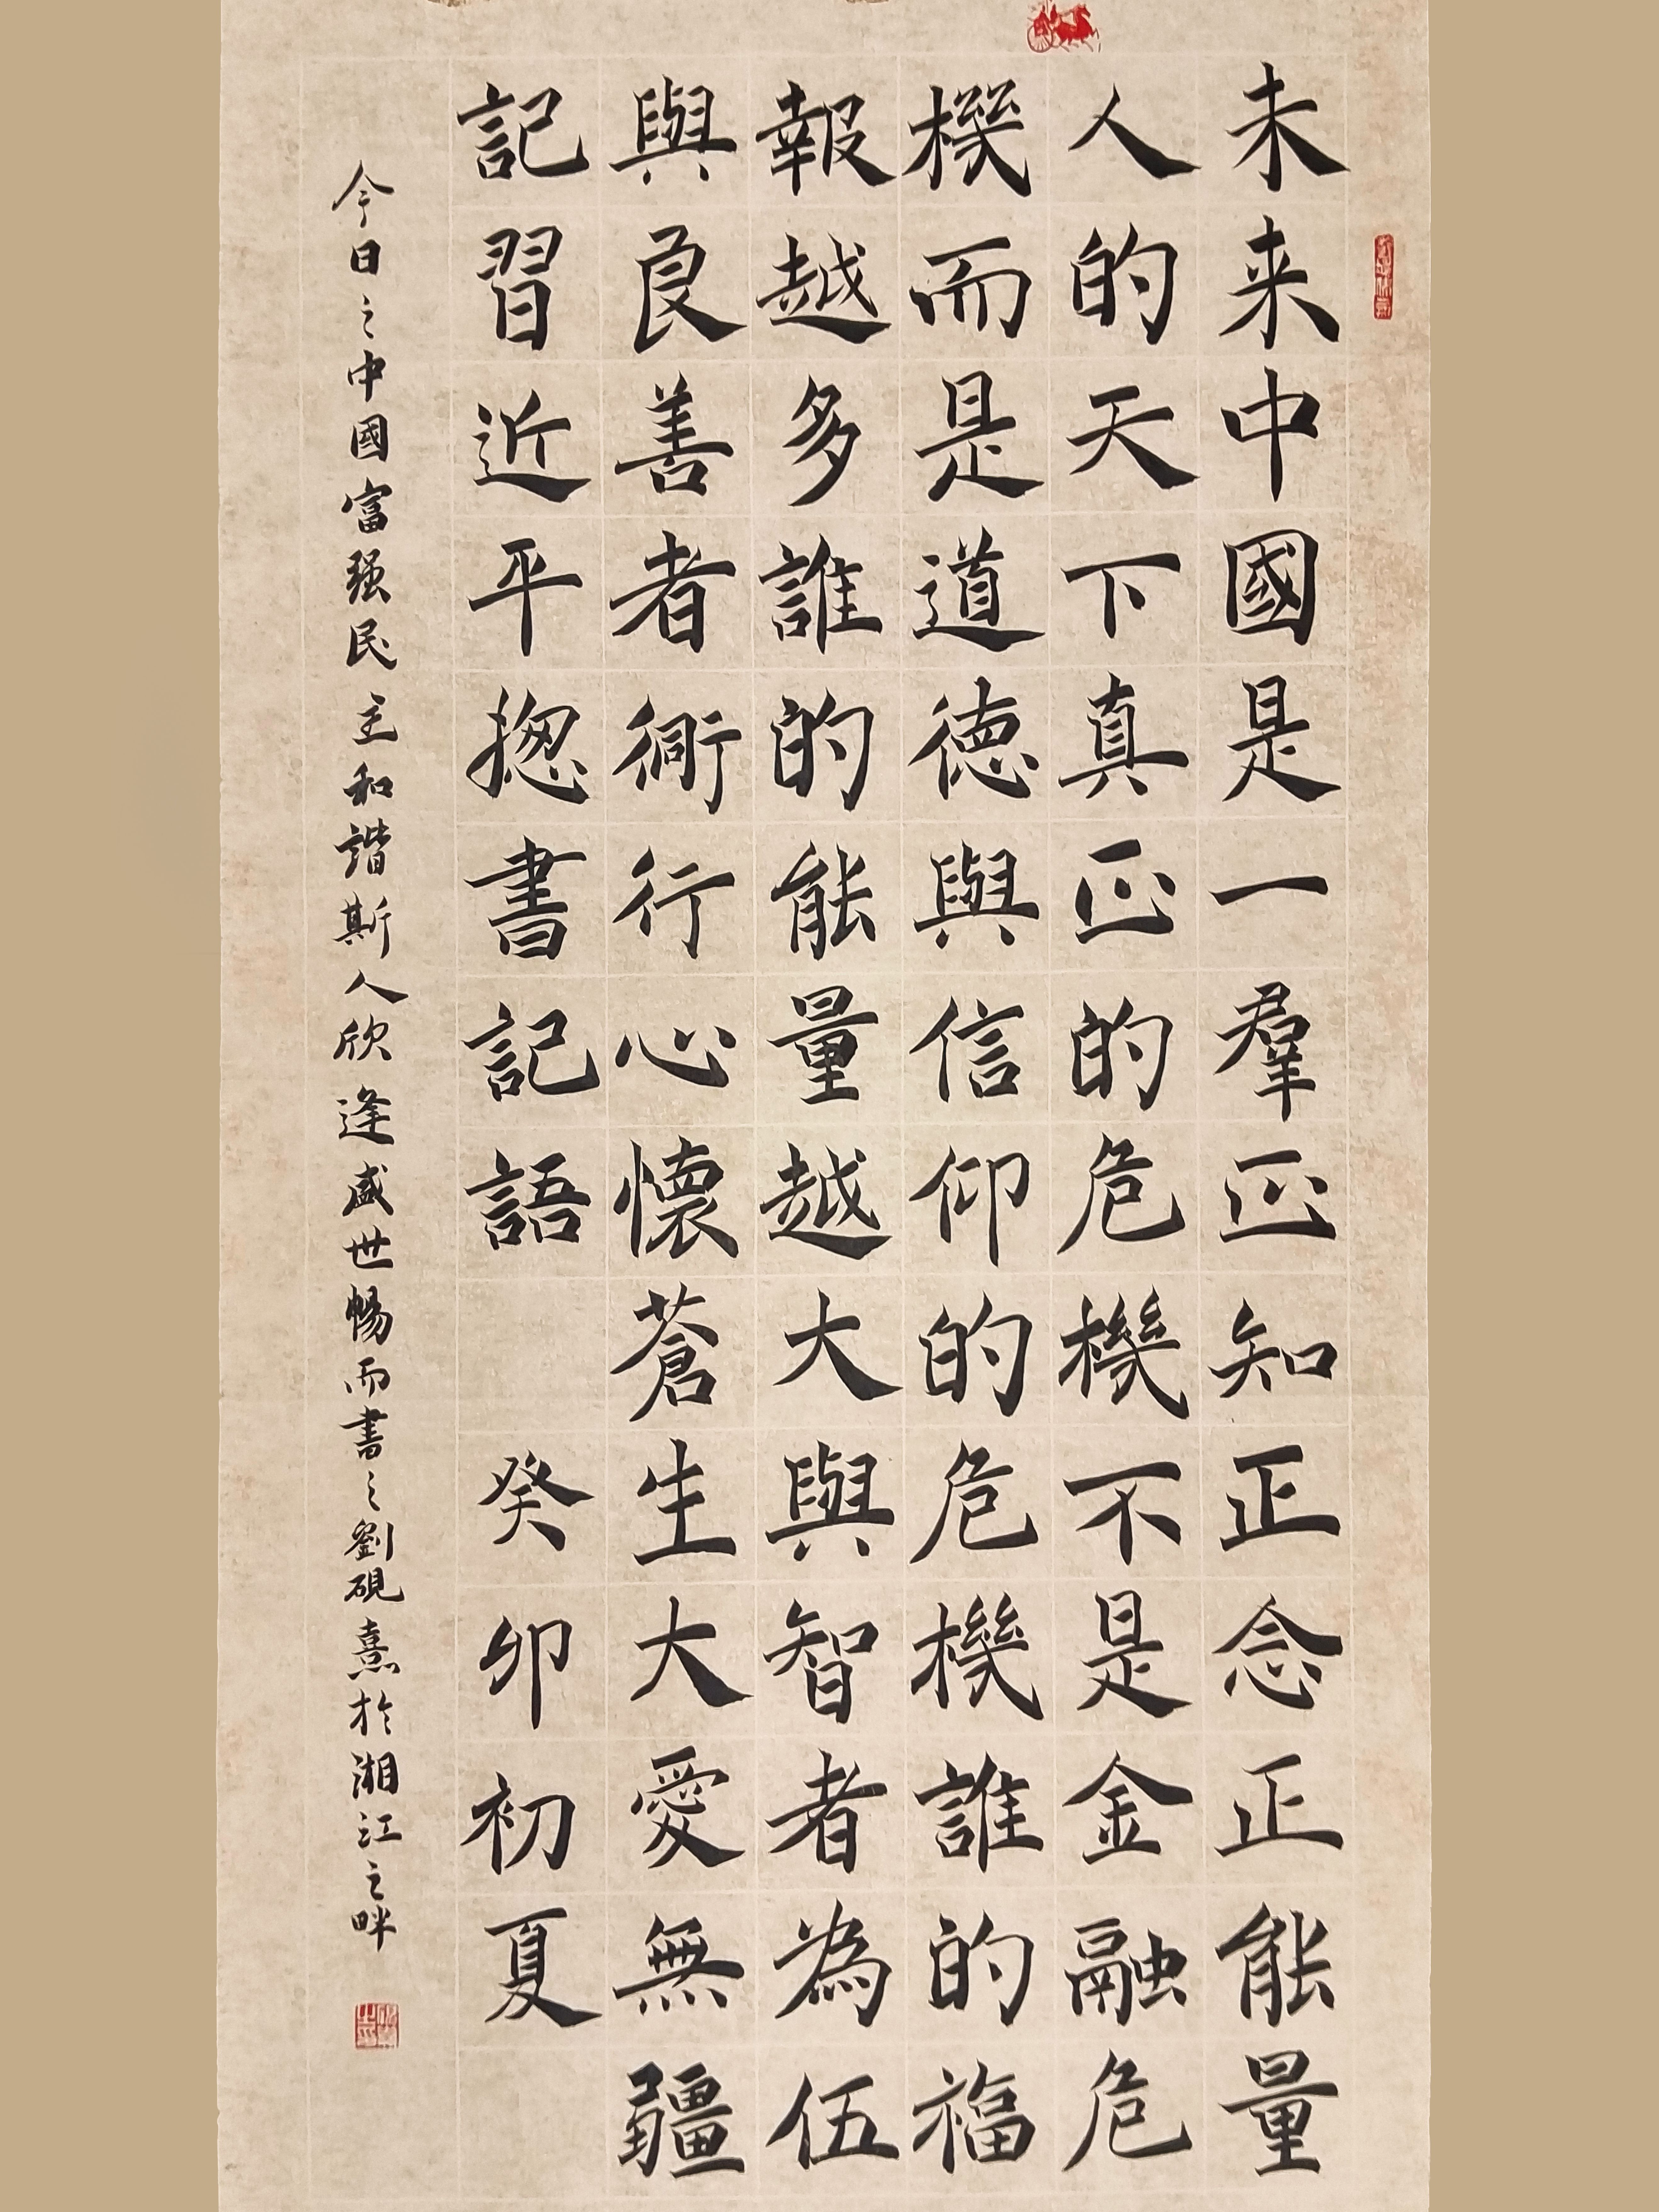 未来中國是一羣正知正念正能量
人的天下真正的危機不是金融危
機而是道德與信仰的危機誰的福
報越多誰的能量越大與智者為伍
與良善者衕行心懷蒼生大愛無疆
記習近平揔書記記語 癸卯初夏
今日之中國富强民主和諧斯人欣逢盛世暢而書之劉硯熹於湘江之畔